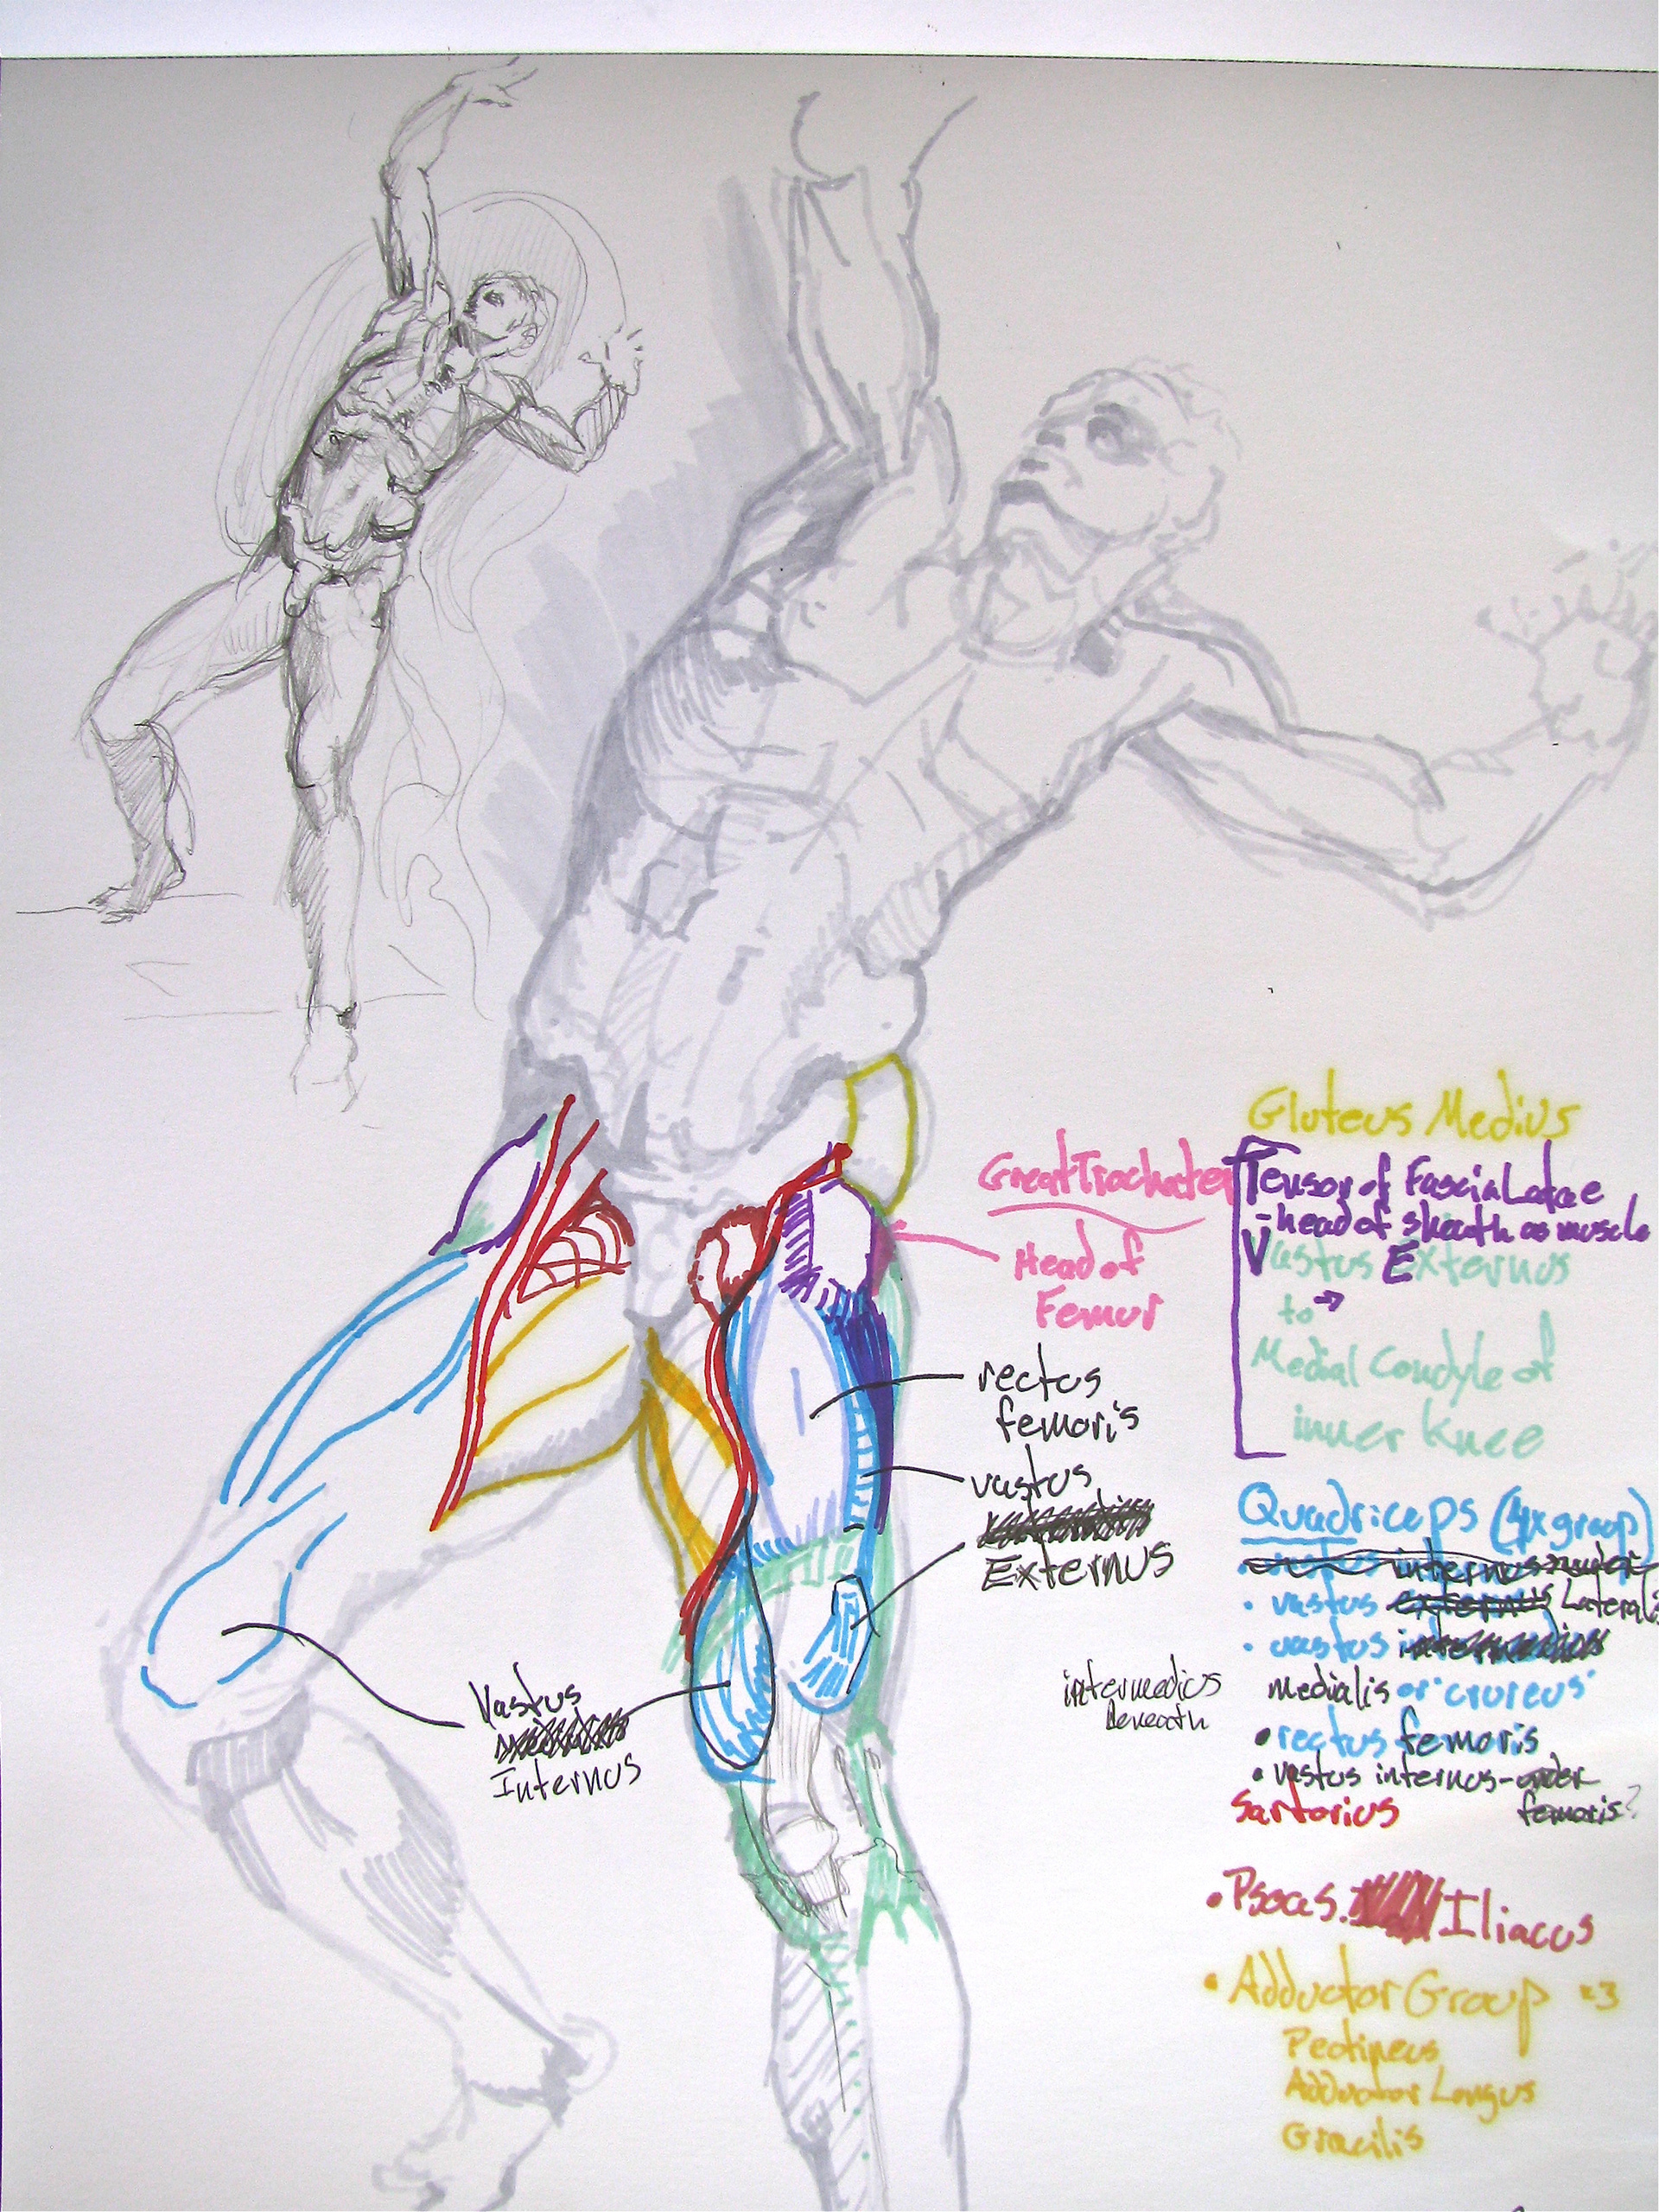 Gluteus Medius
Great Trochater
Head of
Femur
Tensor of Fascia Latae
-head of sheath as muscle
Vastus Externus
to →
Medial Condyle of
inner Knee
rectus
femoris
vastus
Externus
Quadriceps (4x group)
internus-under
• vastus externus Lateralis
• vastus
medialis or "crureus"
• rectus femoris
• vastus internus-under
femoris?
intermedius
Beneath
Vastus
Internus
Sartorius
• Psoas. Iliacus
• Adductor Group x3
Pectineus
Adductor Longus
Gracilis